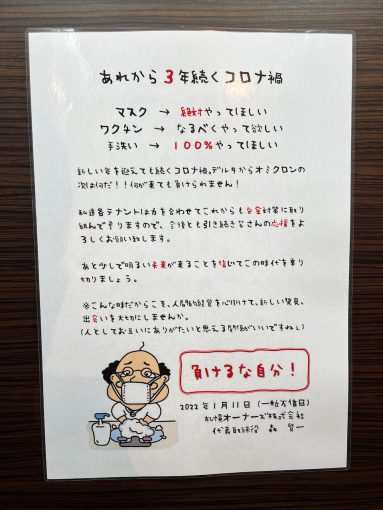 あれから3年続くコロナ禍
マスク → 絶対やってほしい
ワクチン → なるべくやって欲しい
手洗い → 100%やってほしい
新しい年を迎えても続くコロナ禍。デルタからオミクロンの
次は何だ!!何が来ても負けられません!
私達各テナントは力を合わせてこれからも安全対策に取り
組んで参りますので、今後とも引き続き皆さんの応援をよ
ろしくお願い致します。
あと少しで明るい未来が来ることを信じてこの時代を乗り
切りましょう。
※こんな時だからこそ、人間的経営を心掛けて、新しい発見、
出会いを大切にしませんか。
(人としてお互いにありがたいと思える関係がいいですねぇ)
負けるな自分!
2022年1月11日(一粒万倍日)
札幌オーナーズ株式会社
代表取締役 森 賢一